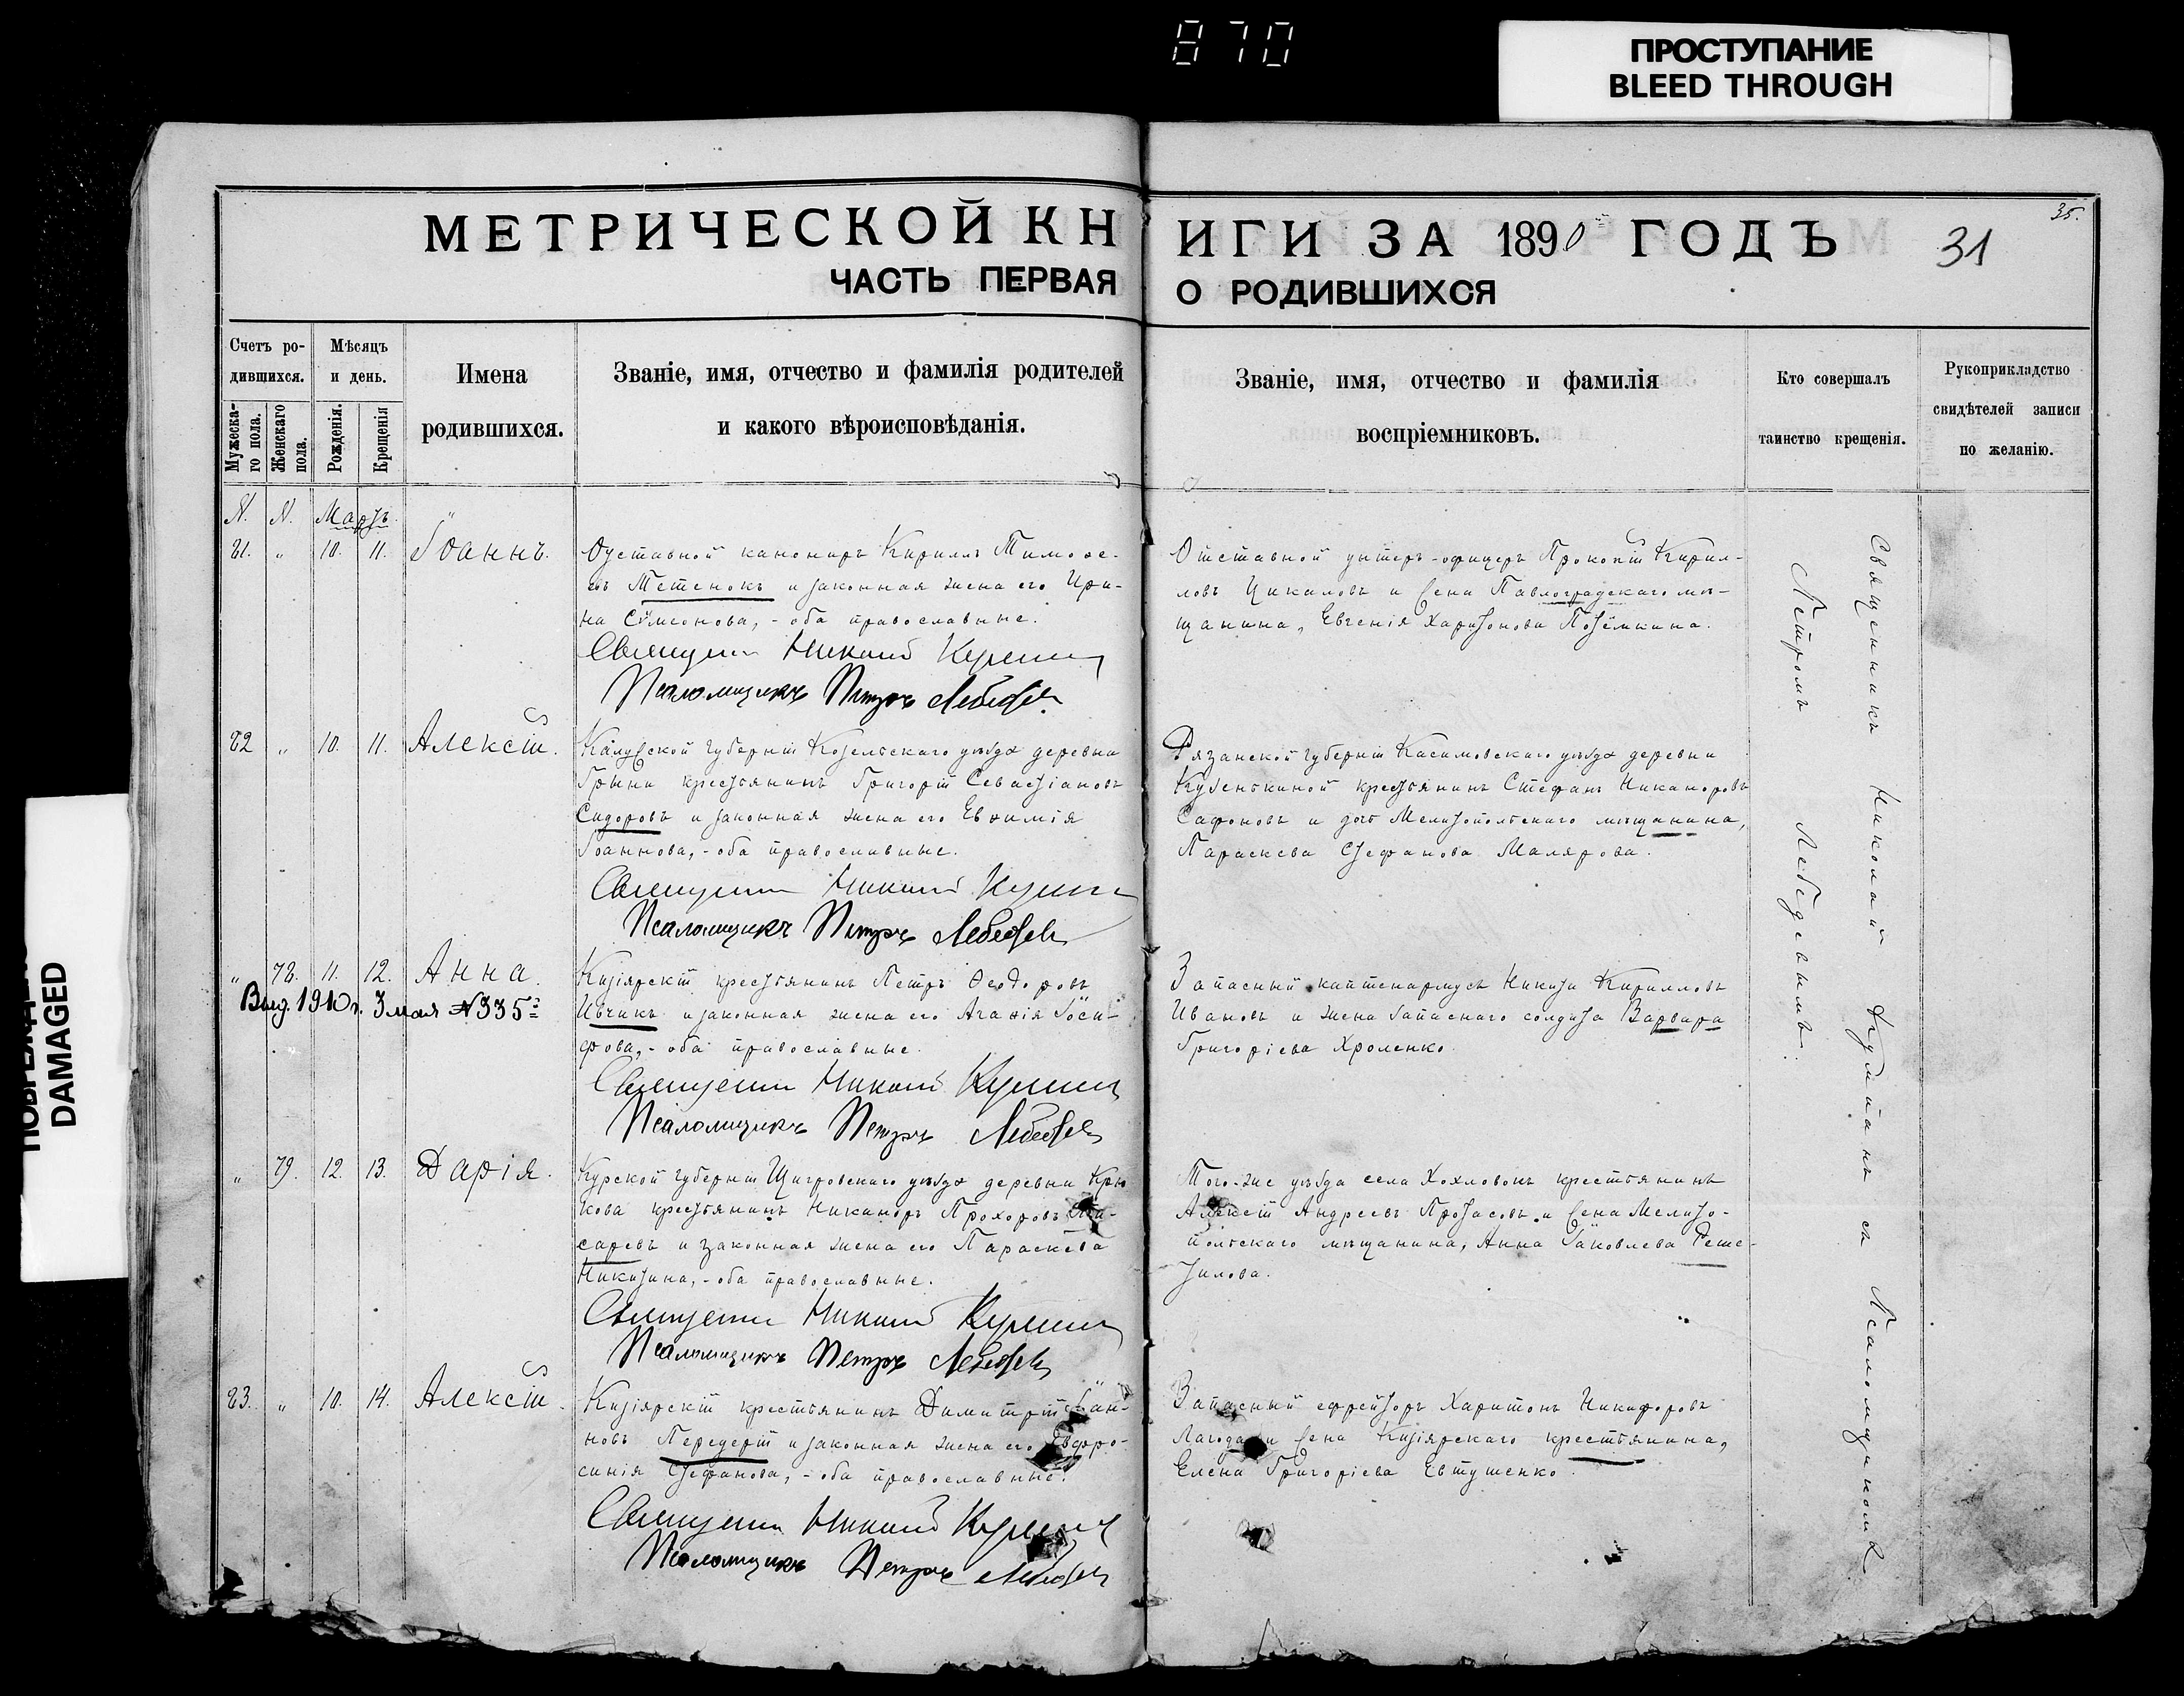 870
ПРОСТУПАНИЕ
BLEED THROUGH
DAMAGED
35.
МЕТРИЧЕСКОЙ КНИГИ ЗА 1890 ГОДЪ
31
ЧАСТЬ ПЕРВАЯ О РОДИВШИХСЯ
Счетъ ро-
дившихся.
Мужеска-
го пола.
Женскаго
пола.
Мѣсяцъ
и день.
Рожденія.
Крещенія
Имена
родившихся.
Званіе, имя, отчество и фамилія родителей
и какого вѣроисповѣданія.
Званіе, имя, отчество и фамилія
воспріемниковъ.
Кто совершалъ
таинство крещенія.
Рукоприкладство
свидѣтелей записи
по желанію.
N. N. Мартъ
81. " 10. 11. Іоаннъ.
Отставной канониръ Кирилъ Тимоѳе-
евъ Метенокъ и законная жена его Ири-
на Сѵмеонова, - оба православные.
Священникъ Николай
Псаломщикъ Петръ Лебедевъ
Отставной унтеръ-офицеръ Прокопій Кирил-
ловъ Цикаловъ и жена Павлоградскаго мѣ-
щанина, Евгенія Харитонова Потёмкина.
82 " 10. 11. Алексій.
Калужской губерніи Козельскаго уѣзда деревни
Грыни крестьянинъ Григорій Севастіановъ
Сидоровъ и законная жена его Евѳимія
Іоаннова, - оба православные.
Священникъ Николай
Псаломщикъ Петръ Лебедевъ
Рязанской губерніи Касимовскаго уѣзда деревни
Кубенкиной крестьянинъ Стефанъ Никаноровъ
Сафоновъ и дочь Мелитопольскаго мѣщанина,
Параскева Стефанова Малярова.
" 78. 11. 12. Анна.
Выд. 1910 г. 3 мая N 335
Кизіярскій крестьянинъ Петръ Ѳеодоровъ
Ивчикъ и законная жена его Агаѳія Іоси-
фова, - оба православные.
Священникъ Николай
Псаломщикъ Петръ Лебедевъ
Запасный каптенармусъ Никита Кирилловъ
Ивановъ и жена запаснаго солдата Варвара
Григоріева Хроленко.
" 79. 12. 13. Дарія.
Курской губерніи Щигровскаго уѣзда деревни Крю
кова крестьянинъ Никаноръ Прохоровъ
саревъ и законная жена его Параскева
Никитина, - оба православные.
Священникъ Николай
Псаломщикъ Петръ Лебедевъ
Того-же уѣзда села Хохловокъ крестьянинъ
Алексій Андреевъ Протасовъ и жена Мелито-
польскаго мѣщанина, Анна Іаковлева Реше-
тилова.
83. " 10. 14. Алексій.
Кизіярскій крестьянинъ Димитрій Іоан-
новъ Передерій и законная жена его Евфро-
синія Стефанова, - оба православные.
Священникъ Николай
Псаломщикъ Петръ Лебедевъ
Запасный ефрейторъ Харитонъ Никифоровъ
Лагода и жена Кизіярскаго крестьянина,
Елена Григоріева Евтушенко.
Священникъ Николай съ Псаломщикомъ
Петромъ Лебедевымъ.